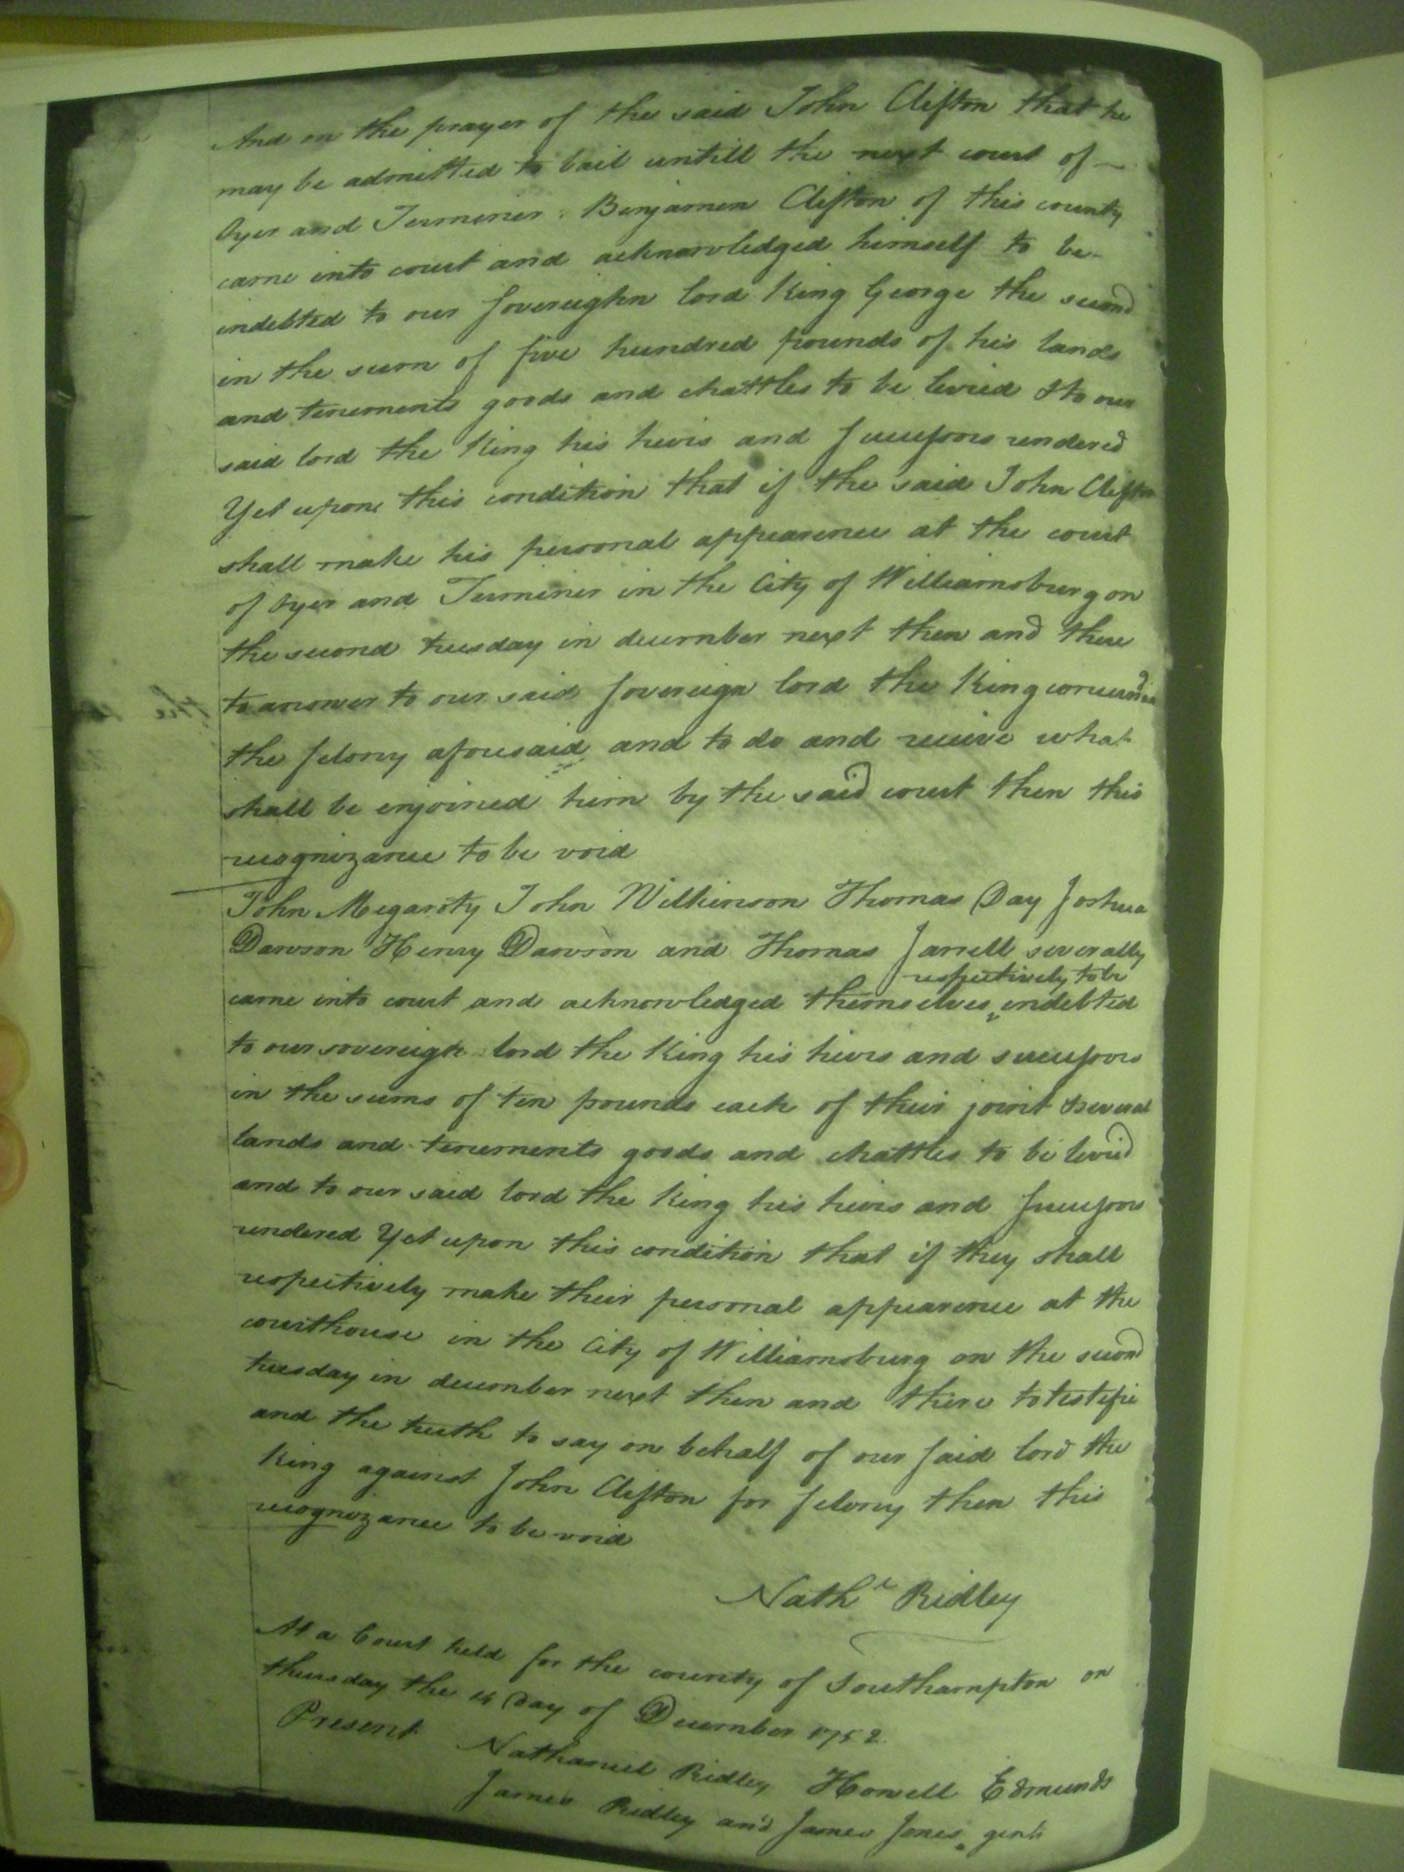 And on the prayer of the said John Clifton that he
may be admitted to bail untill the next court of
Oyer and Terminer. Benjamen Clifton of this county
came into court and acknowledged himself to be
indebted to our sovereighn lord King George the second
in the sum of five hundred pounds of his lands
and tenements goods and chattles to be levied & to our
said lord the King his heirs and successors rendered
Yet upon this condition that if the said John Clifton
shall make his personal appearence at the court
of Oyer and Terminer in the City of Williamsburg on
the second tuesday in december next then and there
to answer to our said sovereign lord the King concerning
the felony aforesaid and to do and receive what
shall be enjoined him by the said court then this
recognizance to be void
John Megarity John Wilkinson Thomas Day Joshua
Dawson Henry Dawson and Thomas Jarrell severally
respectively to be
came into court and acknowledged themselves indebted
to our sovereign lord the King his heirs and successors
in the sums of ten pounds each of their joint & several
lands and tenements goods and chattles to be levied
and to our said lord the King his heirs and successors
rendered Yet upon this condition that if they shall
respectively make their personal appearence at the
courthouse in the City of Williamsburg on the second
tuesday in december next then and there to testifie
and the truth to say on behalf of our said lord the
King against John Clifton for felony then this
recognizance to be void
Nathl Ridley
At a Court held for the county of Southampton on
thursday the 14 Day of December 1752
Present Nathaniel Ridley, Howell Edmunds
James Ridley and James Jones gent